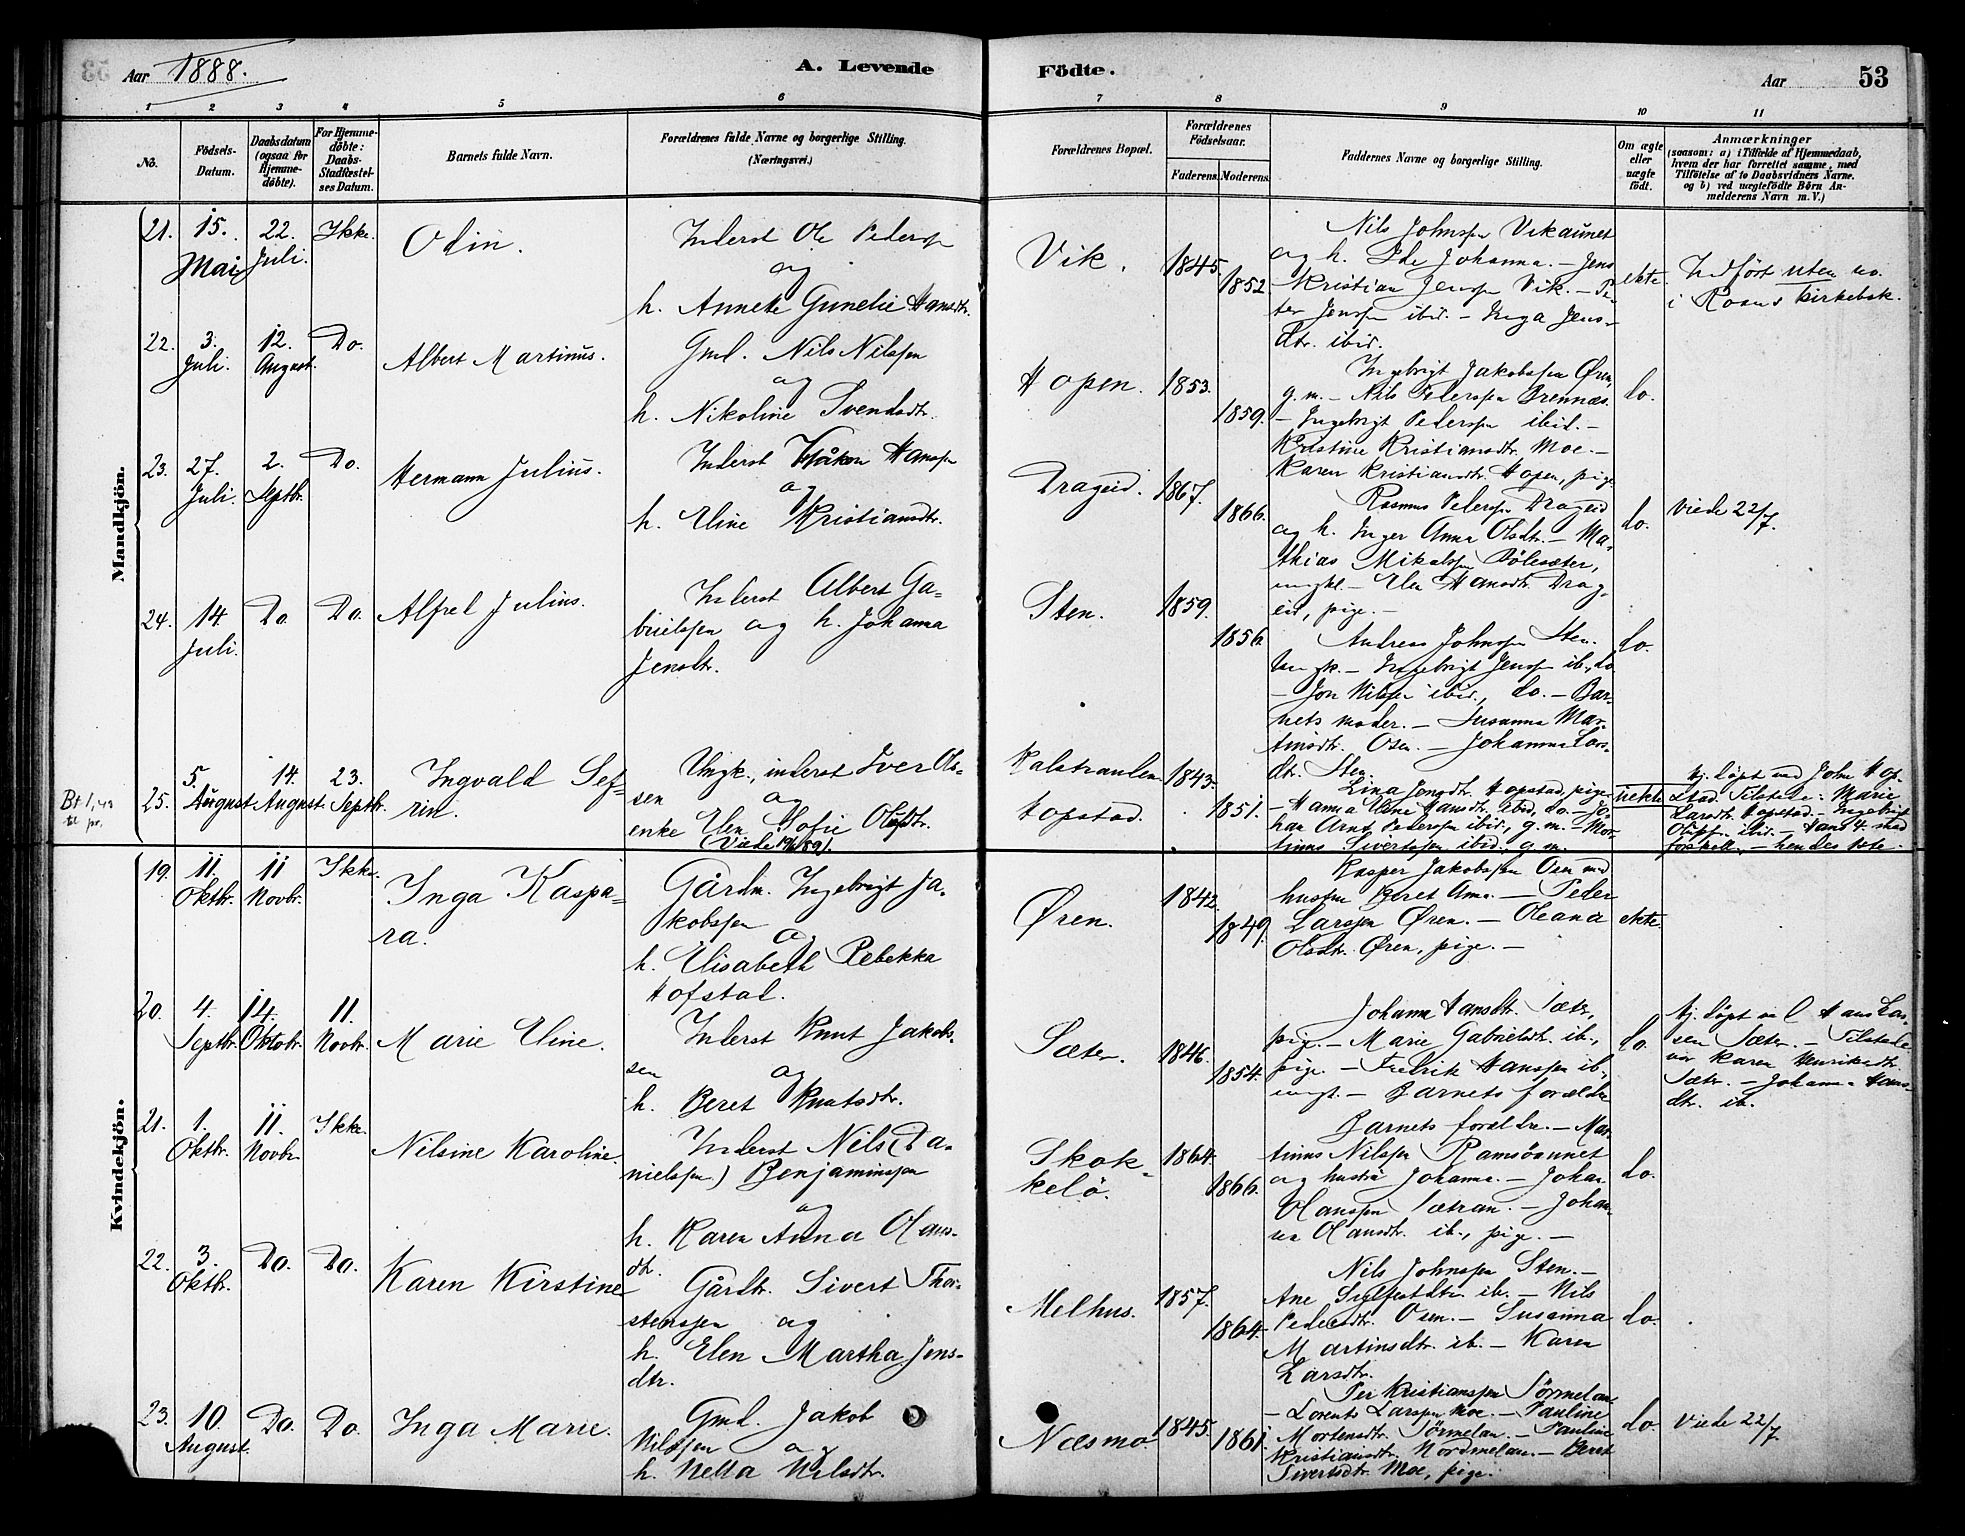 Aar 1888.
A. Levende
Födte.
Aar
53
1 2 3 4 5 6 7 8 9 10 11
No.
Födsels-
Datum.
Daabsdatum
(ogsaa for
Hjemme-
döbte).
For Hjemme-
döbte:
Daabs-
Stadfæstel-
ses Datum.
Barnets fulde Navn.
Forældrenes fulde Navne og borgerlige Stilling.
(Næringsvei.)
Forældrenes Bopæl.
Forældrenes
Födselsaar.
Faderens. Moderens.
Faddernes Navne og borgerlige Stilling.
Om ægte
eller
uægte
födt.
Anmærkninger
(saasom: a) i Tilfælde af Hjemmedaab,
hvem der har forrettet samme, med
Tilföielse af to Daabsvidners Navne.
og b) ved uægtefödte Börn An-
melderens Navn m. V.)
Mandkjön.
21. 15. Mai 22. Juli. Ikke.
Odin.
Inderst Ole Pederssen
og
h. Annette Gunelie Hansdtr.
Vik.
1845.
1852.
Nils Johnssen Vikaunet
og h. Ide Johanna. – Jens
Kristian Jenssen Vik. – Pe-
ter Jenssen ibid. – Inga Jens-
dtr. ibid.
ekte.
Indfört uten no.
i Roans kirkebok.
22. 3. Juli. 12. August. Do.
Albert Martinus.
Gmd. Nils Nilssen
og
h. Nikoline Svendsdtr.
Hopen.
1853.
1859.
Ingebrigt Jakobssen Øren,
g.m. – Nils Pederssen Brennæs.
– Ingebrigt Pederssen ibid. –
Kristine Kristiansdtr. Moe. –
Karen Kristiansdtr. Hopen, pige.
do.
23. 27. Juli. 2. Septbr. Do.
Hermann Julius.
Inderst Håkon Hanssen
og
h. Eline Kristiansdtr.
Drageid.
1867.
1866.
Rasmus Pederssen Drageid
og h. Inger Anna Olsdtr. – Ma-
thias Mikalssen Dölesæter,
ungkl. – Elen Hansdtr. Drag-
eid, pige. –
do.
Viede 22/7.
24. 14 Juli. Do. Do.
Alfred Julius.
Inderst Albert Ga-
brielssen og h. Johanna
Jensdtr.
Sten.
1859.
1856.
Andreas Johnssen Sten.
ungk. – Ingebrigt Jenssen ib., do
– Jon Nilssen ibid., do. – Bar-
nets moder. – Susanna Mar-
tinsdtr. Osen. – Johanna Lars-
dtr. Sten.
do.
25. 5. August 14. August 23. Septbr.
Ingvald Sef-
rin.
Ungk., inderst Iver Ols-
sen og
enke Elen Sofie Olufsdtr.
Hopstad.
1843.
1851.
Lina Jensdtr. Hopstad, pige
– Hanna Eline Hansdtr. ibid, do. – Jo-
han Arnt Pederssen ibid., g.m. – Mar-
tinus Sivertssen ibid., g.m.
uekte
Hj. döpt ved John Hop-
stad. Tilstede: Marie
Larsdtr. Hopstad. – Ingebrigt
Kvindekjön.
19. 11. Oktbr. 11 Novbr. Ikke.
Inga Kaspa-
ra.
Gårdm. Ingebrigt Ja-
kobssen og
h. Elisabeth Rebekka
Hofstad.
Øren.
1842.
1849.
Kasper Jakobssen Osen med
hustru Beret Anna. – Peder
Larssen Øren. – Oleana
Olsdtr. Øren, pige. –
ekte
20. 4. Septbr. 14. Oktobr. 11. Novbr.
Marie Eline.
Inderst Knut Jakobs-
sen og
h. Beret Knutsdtr.
Sæter.
1846.
1854.
Johanna Hansdtr. Sætr,
pige. – Marie Gabrielsdtr. ib.,
pige. – Fredrik Hanssen ib.,
ungk. – Barnets forældre
do.
Hj. döpt ved Hans Las-
sen Sætr. – Tilstede
var Karen Henriksdtr.
Sætr. – Johanna Hans-
dtr. ib.
21. 1. Oktbr. 11. Novbr. Ikke.
Nilsine Karoline.
Inderst Nils (Da-
nielssen) Benjaminssen
og
h. Karen Anna Hans-
dtr.
Skok-
kelö.
1864.
1866.
Barnets forældre. – Mar-
tinus Nilssen Ramsöaunet
og hustru Johanna. – Johan
Hanssen Sætran. – Johan-
na Hansdtr. ib., pige. –
do.
22. 3. Oktbr. Do. Do.
Karen Kirstine
Gårdbr. Sivert Thor-
stenssen og
h. Elen Martha Jens-
dtr.
Melhus.
1857.
1864.
Nils Johnssen Sten. –
Ane Sylfestdtr. ib. – Nils
Pedersdtr. Osen. – Susanna
Martinsdtr. ib. – Karen
Larsdtr.
do.
23. 10. August. Do. Do.
Inga Marie.
Gmd. Jakob
Nilssen og
h. Netta Nilsdtr.
Næsmo
1845.
1861.
Per Kristianssen Sörmelan
– Lorents Larssen Moe. – Pauline
Mortensdtr. Sörmelan. – Pauline
Kristiansdtr. Nordmelan. – Beret
Sivertsdtr. Moe, pige.
do.
Viede 22/7.